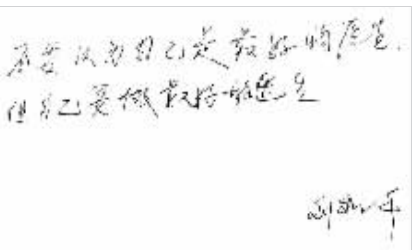 不要认为自己是最好的医生.
但自己要做最好的医生